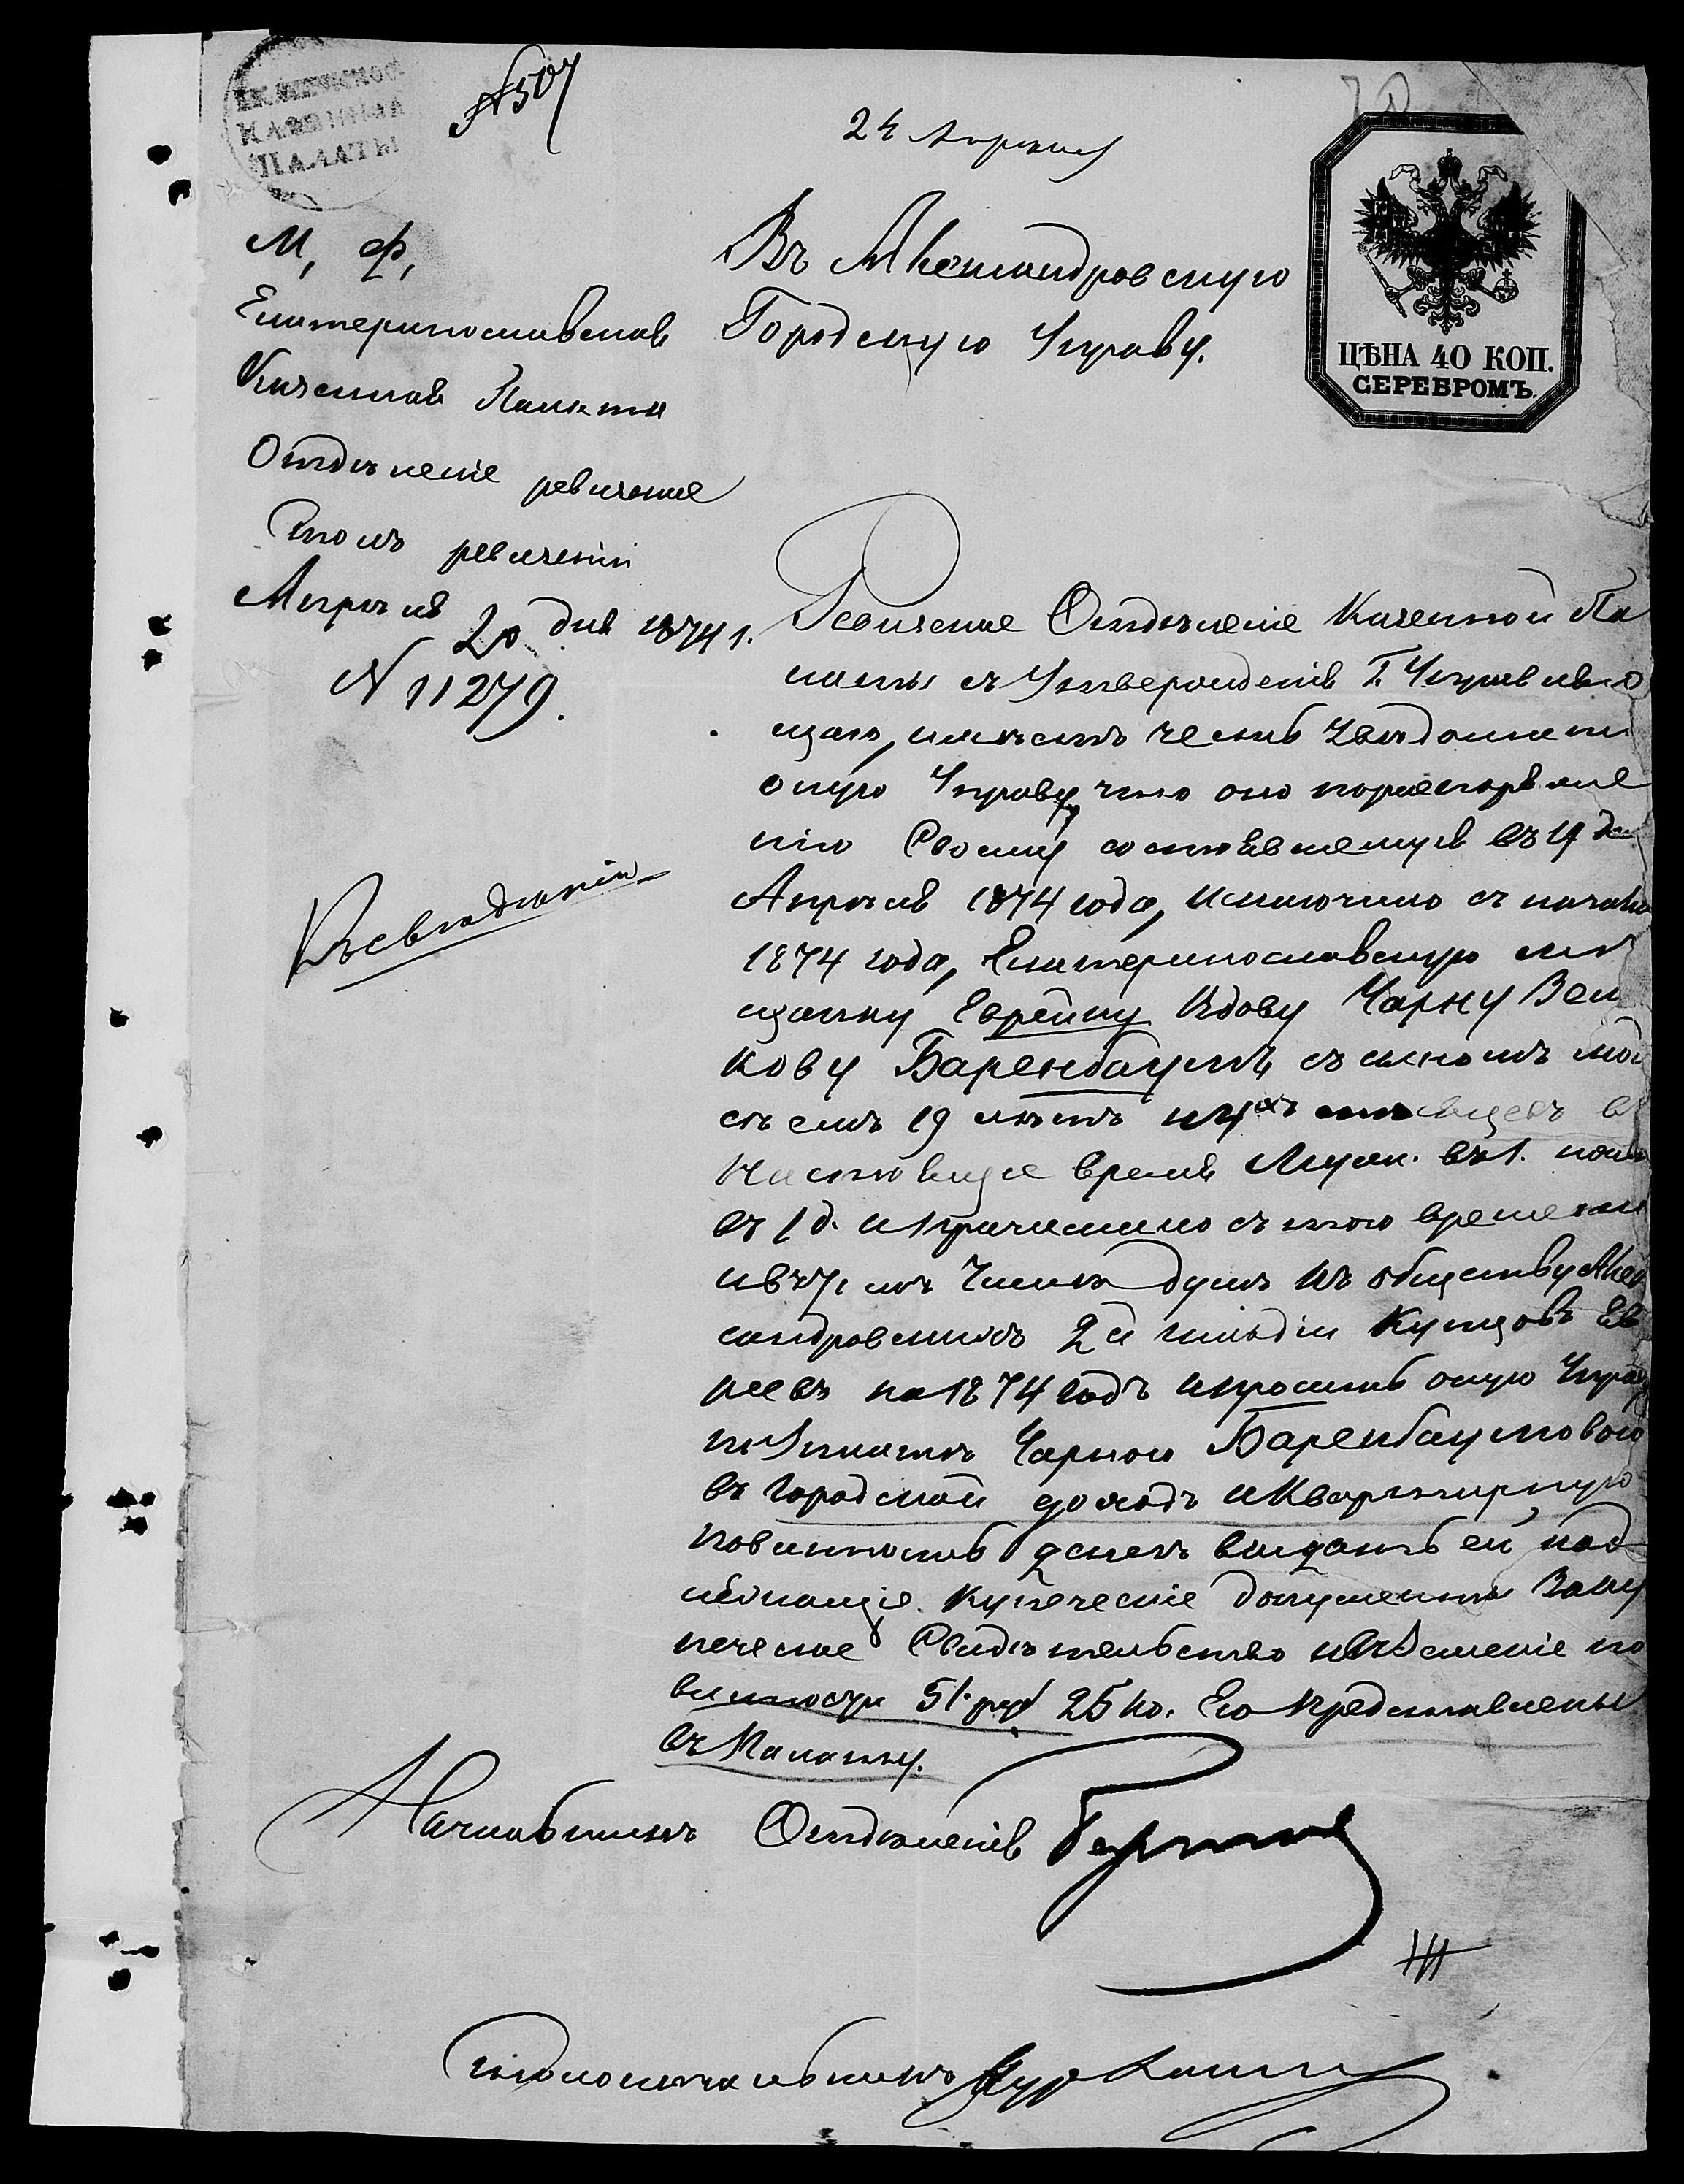 ЕКАТЕРИНОС.
КАЗЕННАЯ
ПАЛАТЫ
№ 507
24 Апреля
ЦѢНА 40 КОП.
СЕРЕБРОМЪ.
М, Ф,
Екатеринославская
Казенная Палата
Отдѣленіе ревизское
Столъ ревизскій
Апрѣля 20 дня 1874 г.
N 11279.
Въ Александровскую
Городскую Управу.
Къ свѣдѣнію
Ревизское Отдѣленіе Казенной Па
латы съ Утвержденія Г. Управляю
щаго, имѣетъ честь Увѣдомить
оную Управу что оно по
нію Своему состоявшемуся въ 19 д.
Апрѣля 1874 года, исключило съ начала
1874 года, Екатеринославскую мѣ
щанку Еврейку Вдову Чарну Вель
кову Баренбаумъ съ сыномъ Мой
сѣемъ 19 лѣтъ и
Настоящее время Муж. въ 1. пол.
въ 1 д. и причислило съ того времени
душъ къ обществу Алек
сандровскихъ 2й гильдіи Купцовъ Ев
реевъ на 1874 годъ и проситъ оную Управу
по Уплатѣ Чарною Баренбаумовою
въ городской доходъ и Квартирную
повинность денегъ выдать ей над
лежащіе Купеческіе документы За Ку
печеское Свидѣтельство и по
винности 51 руб 25 ко. Ею представлены
въ Палату.
Начальникъ Отдѣленія
Столоначальникъ